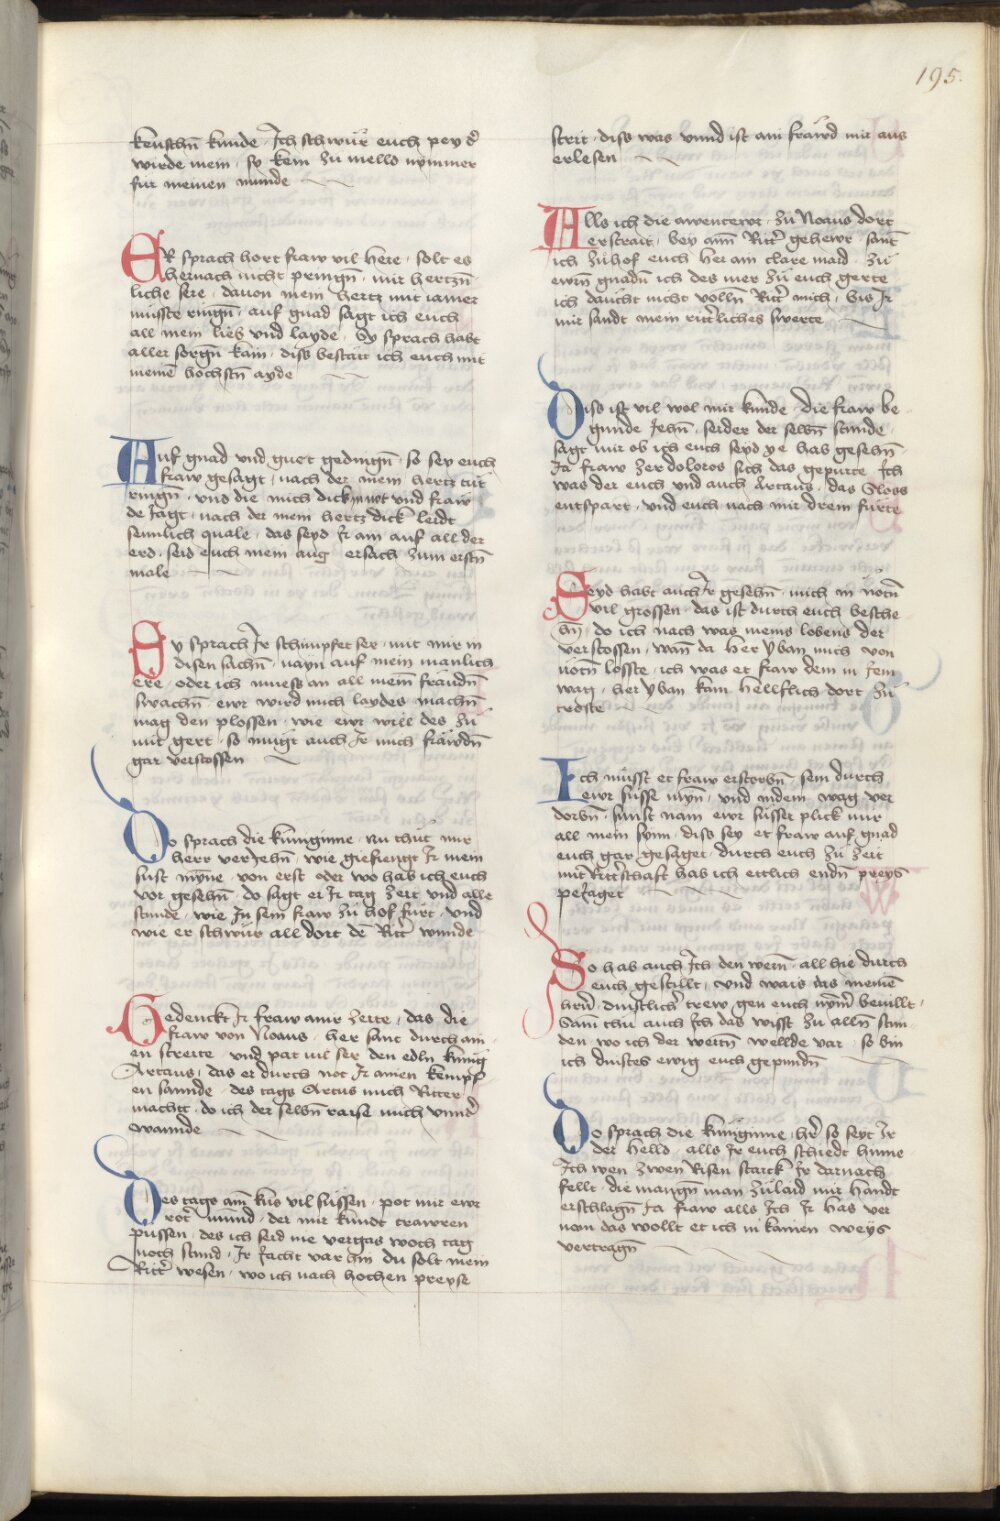 195.
keuschn̄ kunde · Ich schwür euch pey d̄
wirde mein · sy kem zu mells nymmer
für meinen munde
ER sprach hort fraw vil here · solt es
hernach nicht pringn̄ · mir hertzn̄
liche sere · dauon mein hertz mit iamer
müsste ringn̄ · auf gnad sagt ich euch
all mein lieb vnd layde · Sy sprach habt
aller sorgn̄ kain · diss bestät ich euch mit
meinē hochstn̄ ayde
Auf gnad vnd guet gedingn̄ · so sey euch
fraw gesagt · nach der mein hertz tüt
ringn̄ · vnd die mich dick muot vnd fraw
de Jagt · nach der mein hertz dick leidt
senlich quale · das seyd Ir ain auf all der
erd · seid euch mein aug ersach zum erstn̄
male
Sy sprach Ir schimpfet ser · mit mir in
disen sachn̄ · nayn auf mein manlich
ere · oder ich muess an all mein̄ fräudn̄
swachn̄ · ewr wird mich laydes machn̄
mag den plossen · wie ewr will des zu
mit gert · so mügt auch Ir mich fräwdn̄
gar verstossen
Do sprach die kuniginne · nu thüt mir
herr verJehn̄ · wie giefiengt Ir mein
sust mynne · von erst oder wo hab ich euch
vor gesehn̄ · do sagt er Ir tag zeit vnd alle
stunde · wie In sein fraw zu hof fürt · vnd
wie er schwür all dort de Ritt̄ wunde
Gedenckt Ir fraw amr zerte · das die
fraw von Noaus · her sant durch ain
en streite · vnd pat vil ser den edln kunig
Artaus · das er durch not Ir ainen kempf
en sannde · des tags Artus mich Ritter
machtt · do ich der selbn̄ raise mich vnnd̄
wannde
Des tags am̄ kus vil süssen · pot mir ewr
rott̄ mund · der mir kundt trawren
püssen · des ich seid nie vergas woch tag
noch stund · Ir Jacht var hin du solt mein
Ritt̄ wesen · wo ich nach hochen preyse
strit · diss was vnnd ist ain fräwd mir aus
erlesen
Alls ich die awentewr · zu Noaus dort
erstrait · bey ann̄ Ritt̄ gehewr · sant
ich zu hof euch her ain clare maid · zu
ewrn̄ gnadn̄ ich des mer zu euch gerte
ich daucht nicht volln̄ Ritt̄ mich · bis Ir
mir sandt mein ritt̄liches swerte
Diss ist vil wol mir kunde · die fraw be
gunde Jehn̄ · seider der selbn̄ stunde
sagt mir ob ich euch seyd ye hab gesehn̄
Ja fraw zer doloros sich das gepurte Ich
was der euch vnd auch Artaus · das Sloss
entspart · vnd euch nach mir drein furte
Seyd habt auch Ir gesehn̄ · mich in nötn̄
vil grossen · das ist durch euch besche
hn̄ · do ich nach was meins lobens der
verstossen · wan̄ da her yban mich von
nötn̄ losste · ich was et fraw dem in Jem
wag · her yban kam hellflich dort zu
trosste
Ich müsst et fraw erstorbn̄ sein durch
ewr süsse myn̄ · vnd indem wag ver
dorbn̄ · sunst nam ewr süsser plick mir
all mein synn · diss sey et fraw auf gnad
euch gar gesaget · durch euch zu zeit
mit Ritt̄schaft hab ich ettlich endn̄ preys
peJaget
So hab auch Ich den wern̄ · all hie durch
euch gestillt · vnd wais das meinē
hrn̄ · dinstlich̄ trew · gen euch nym̄ beuillt ·
Sam thu auch Ich das wisst zu alln̄ stun
den · wo ich der weitn̄ wellde var · so bin
ich dinstes ewig euch gepundn̄
Do sprach die kuniginne · hr̄ so seyt Ir
der hells · alls Ir euch schiedt hinne ·
Ich wen zwen Risen starck Ir darnach
fellt · die mangn̄ man zulaid mir handt
erschlagn̄ Ja fraw alls Ich Ir has ver
nam das wollt et ich in kainen weys
vertragn̄